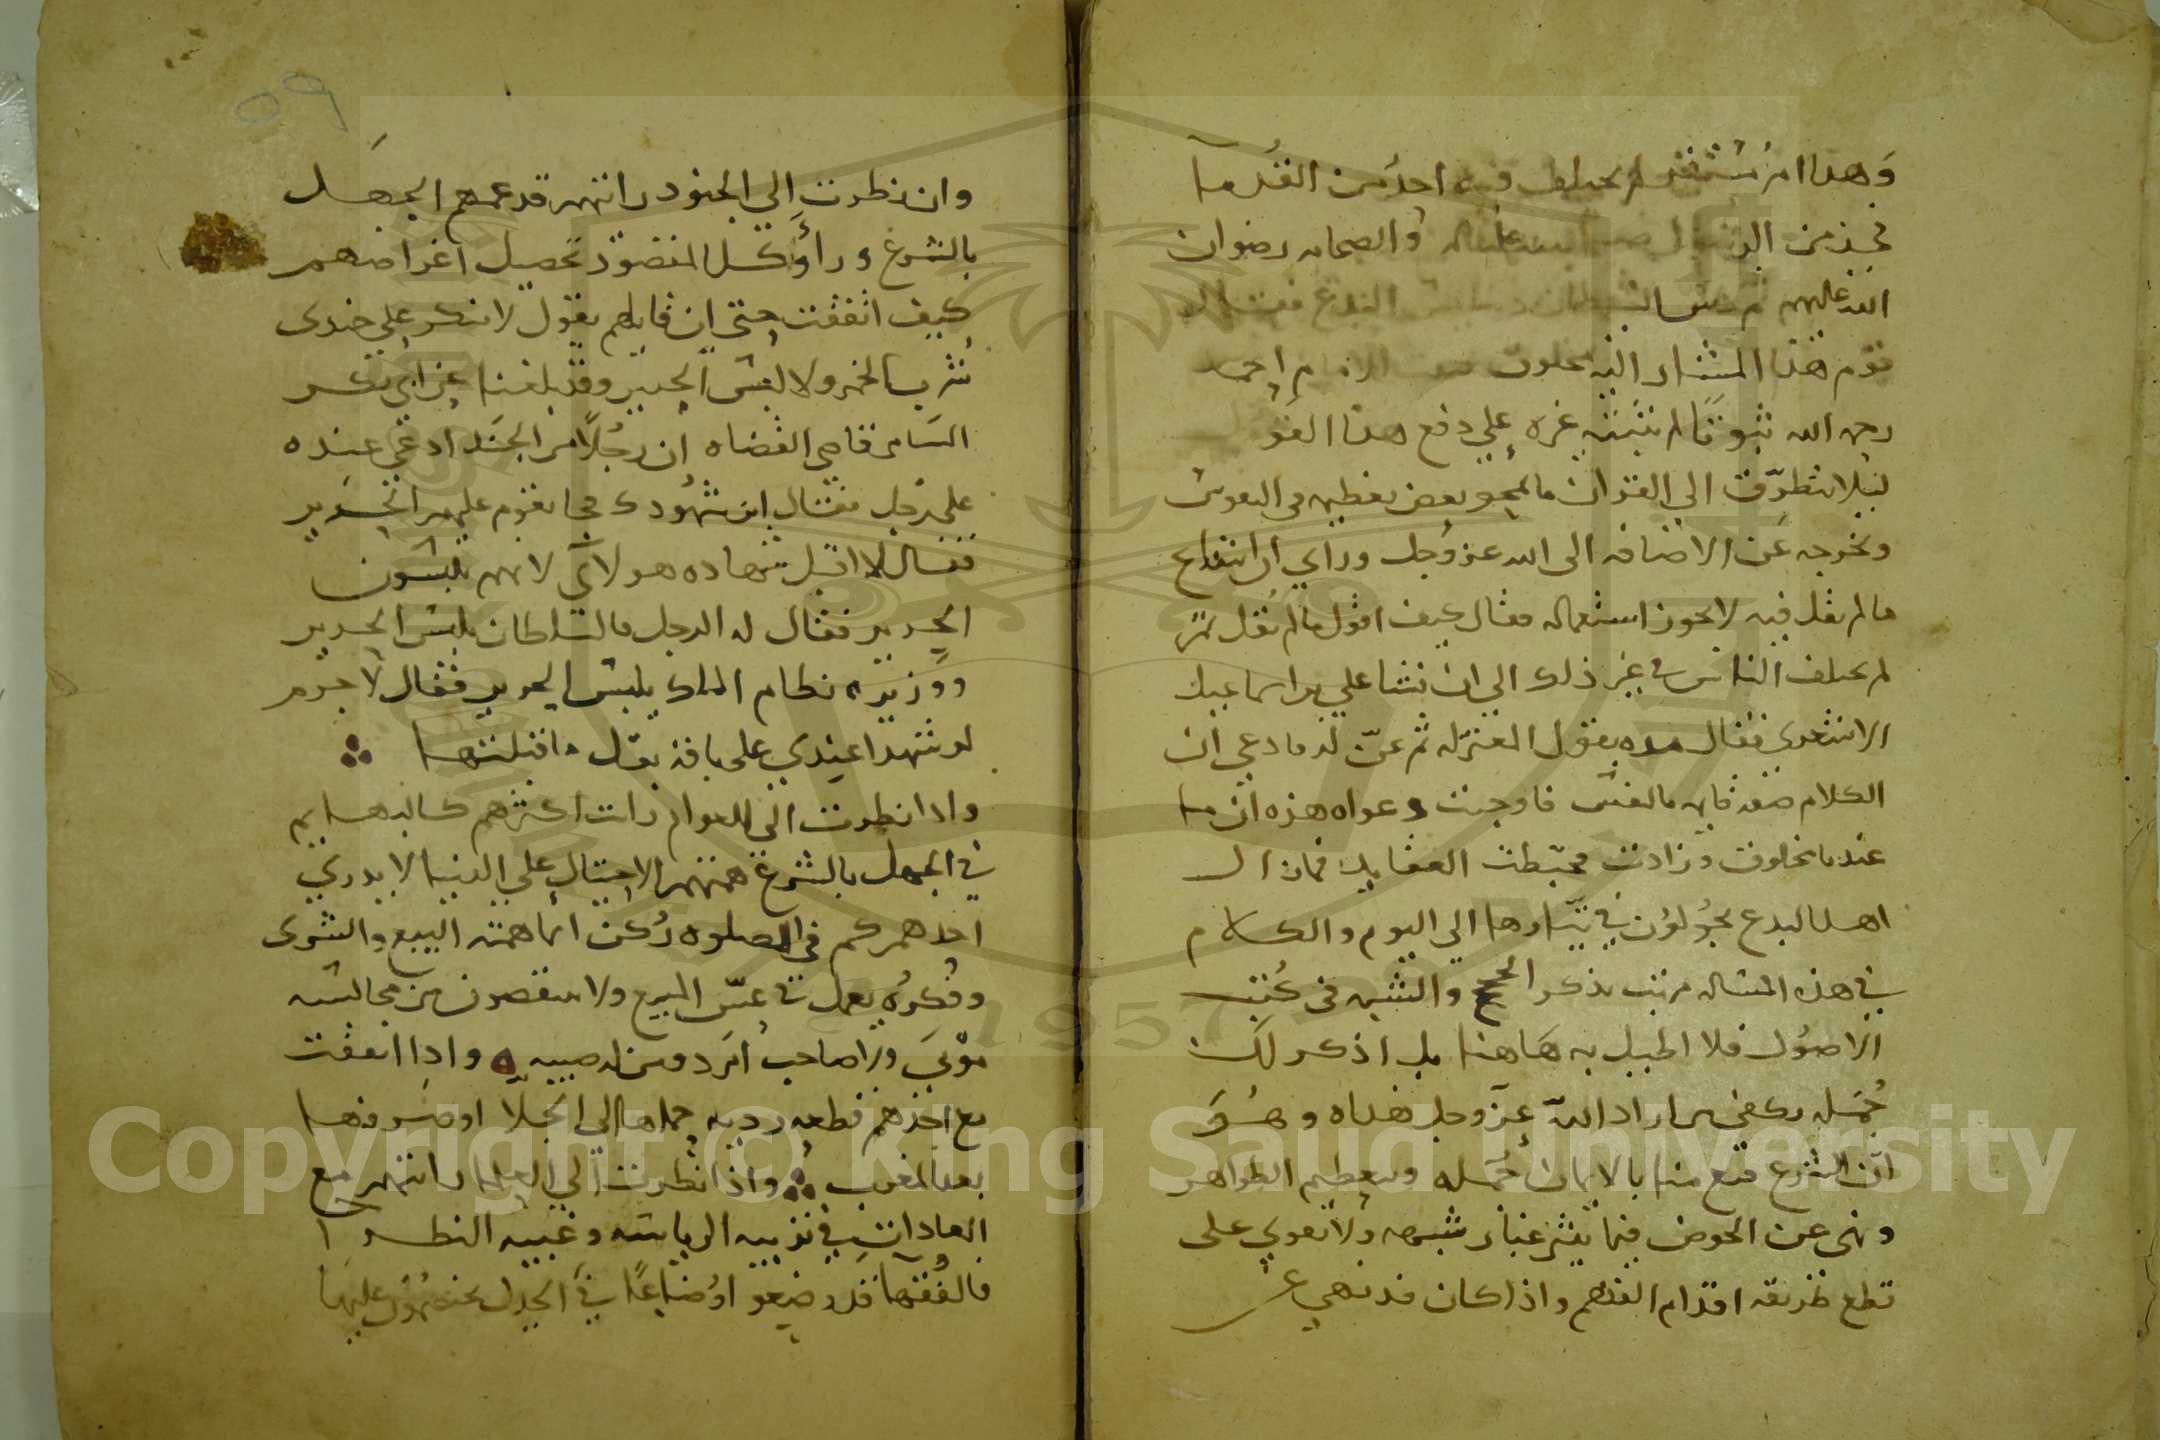 وهذا امر مستقر لم يختلف فيه احد من القدما
في زمن الرسول صلى الله عليه والصحابه رضوان
الله عليهم ثم دس الشيطان دسايس البدع فقال
قوم هذا المشار اليه مخلوق فثبت الامام احمد
رحمه الله ثبوتا لم يثبته غيره على دفع هذا القول
ليلا يتطرق الى القران ما يمحو بعض تعظيمه في النفوس
ويخرجه عن الاضافه الى الله عز وجل وراي ان ابتداع
ما لم يقل فيه لا يجوز استعماله فقال كيف اقول ما لم يقل ثم
لم يختلف الناس في غير ذلك الي ان نشا علي بن اسماعيل
الاشعري فقال مره بقول المعتزله ثم عن له فادعي ان
الكلام صفه قايمه بالنفس فاوجبت دعواه هذه ان ما
عندنا مخلوق وزادت فخبطت العقايد فما زال
اهل البدع يجولون في تيارها الي اليوم والكلام
في هذه المساله مرتب بذكر الحجج والشبه في كتب
الاصول فلا اطيل به هاهنا بل اذكر لك
جمله تكفي من اراد الله عز وجل هداه وهو
ان الشرع قنع منا بالايمان جمله وبتعظيم الظواهر
ونهي عن الخوض فيما يثير غبار شبهه ولا تقوي على
قطع طريقه اقدام الفهم واذا كان قد نهي عن
وان نظرت الي الجنود رايتهم قد عمهم الجهل
بالشرع وراوا كل المقصود تحصيل اغراضهم
كيف اتفقت حتى ان قايلهم يقول لا تنكر علي جندى
شرب الخمر ولا لبس الحرير وقد بلغنا عن ابي بكر
الشامي قاضي القضاه ان رجلا من الجند ادعي عنده
على رجل فقال اين شهودك فجا بقوم عليهم الحرير
فقال لا اقبل شهاده هولاي لانهم يلبسون
الحرير فقال له الرجل فالسلطان يلبس الحرير
ووزيره نظام الملك يلبس الحرير فقال لا جرم
لو شهدا عندي على باقه بقل ما قبلتها
واذا نظرت الى العوام رات اكثرهم كالبهايم
في الجهل بالشرع همتهم الاحتيال على الدنيا لا يدري
احدهم كم في الصلوه ركن انما همته البيع والشرى
وفكره يعمل في غش المبيع ولا ينقصون من مجالسه
مونث ولا صاحب امرد ومن له صبيه واذا اتفقت
مع احدهم قطعه رديه حملها الى الجلا او صرفها
بعد المغرب واذا نظرت الي العلما رايتهم مع
العادات في تربيه الرياسه وغيبه النظرا
فالفقها قد وضعوا اوضاعا في الجدل يخوضون عليها